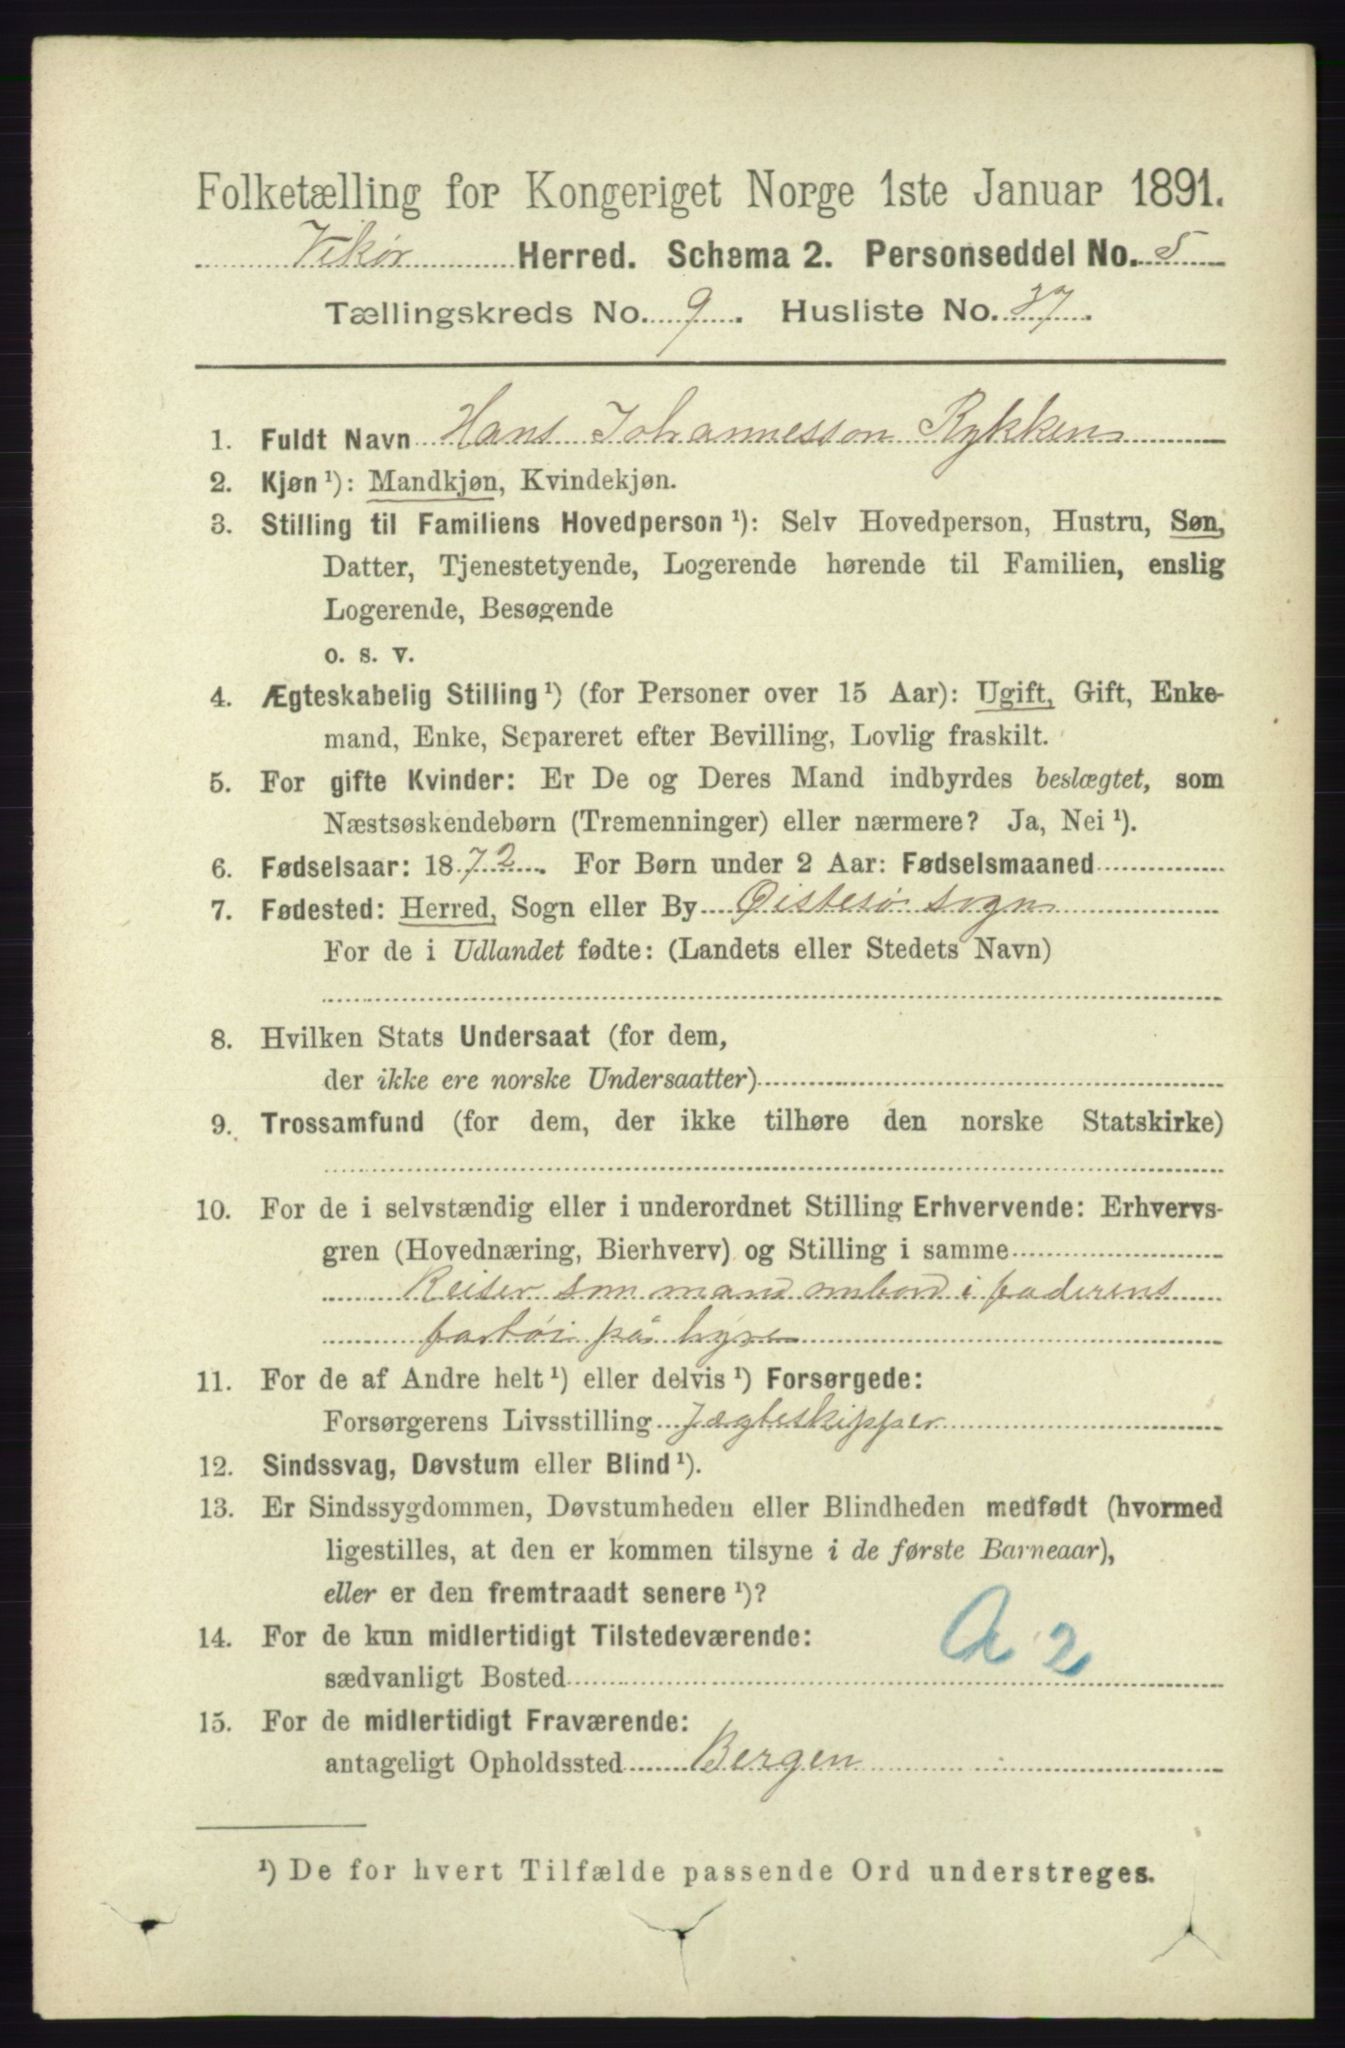 Folketælling for Kongeriget Norge 1ste Januar 1891.
Vikør Herred. Schema 2. Personseddel No. 5
Tællingskreds No. 9. Husliste No. 37.
1. Fuldt Navn Hans Johannesson Rykken
2. Kjøn ¹): Mandkjøn, Kvindekjøn.
3. Stilling til Familiens Hovedperson ¹): Selv Hovedperson, Hustru, Søn,
Datter, Tjenestetyende, Logerende hørende til Familien, enslig
Logerende, Besøgende
o. s. v.
4. Ægteskabelig Stilling ¹) (for Personer over 15 Aar): Ugift, Gift, Enke-
mand, Enke, Separeret efter Bevilling, Lovlig fraskilt.
5. For gifte Kvinder: Er De og Deres Mand indbyrdes beslægtet, som
Næstsøskendebørn (Tremenninger) eller nærmere? Ja, Nei ¹).
6. Fødselsaar: 1872. For Børn under 2 Aar: Fødselsmaaned
7. Fødested: Herred, Sogn eller By Øistesø sogn
For de i Udlandet fødte: (Landets eller Stedets Navn)
8. Hvilken Stats Undersaat (for dem,
der ikke ere norske Undersaatter)
9. Trossamfund (for dem, der ikke tilhøre den norske Statskirke)
10. For de i selvstændig eller i underordnet Stilling Erhvervende: Erhvervs-
gren (Hovednæring, Bierhverv) og Stilling i samme
Reiser som mand ombord i faderens
fartøi på hyre
11. For de af Andre helt ¹) eller delvis ¹) Forsørgede:
Forsørgerens Livsstilling Jægteskipper
12. Sindssvag, Døvstum eller Blind ¹).
13. Er Sindssygdommen, Døvstumheden eller Blindheden medfødt (hvormed
ligestilles, at den er kommen tilsyne i de første Barneaar),
eller er den fremtraadt senere ¹)?
A 2
14. For de kun midlertidigt Tilstedeværende:
sædvanligt Bosted
15. For de midlertidigt Fraværende:
antageligt Opholdssted Bergen
¹) De for hvert Tilfælde passende Ord understreges.